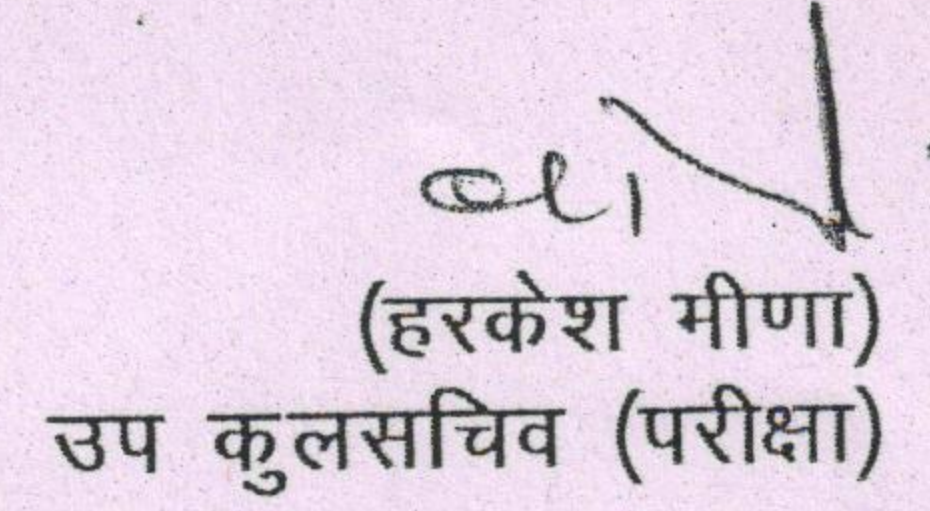 (हरकेश मीणा)
उप कुलसचिव (परीक्षा)